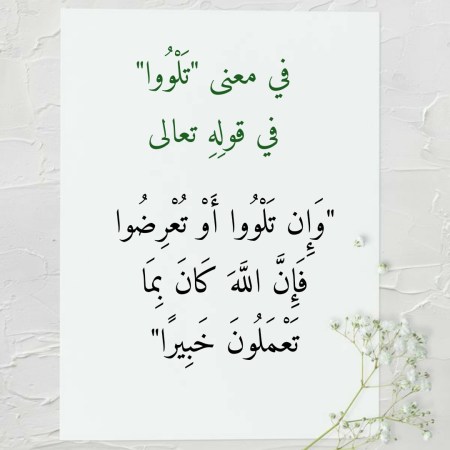 في معنى "تَلْوُوا"
في قولِهِ تعالى
"وَإِن تَلْوُوا أَوْ تُعْرِضُوا
فَإِنَّ اللَّهَ كَانَ بِمَا
تَعْمَلُونَ خَبِيرًا"